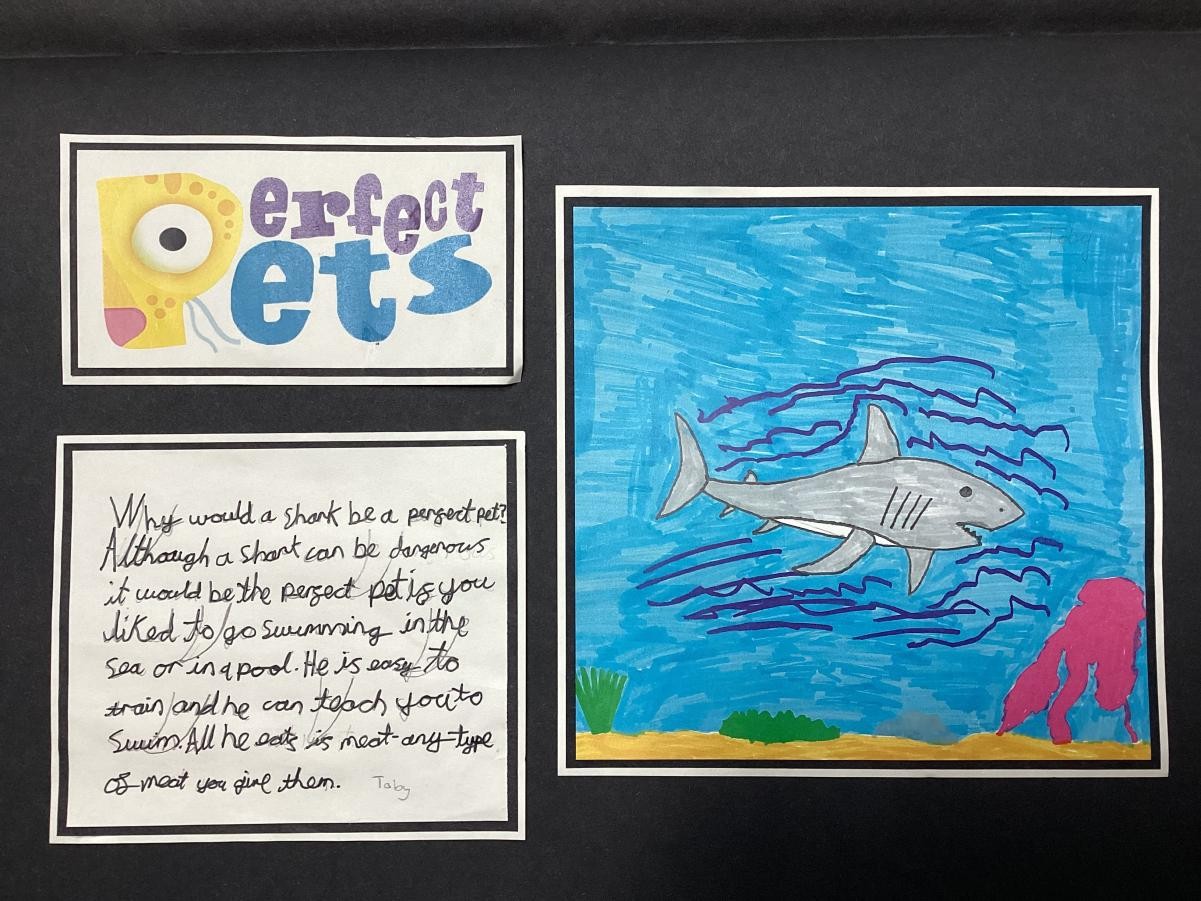 Perfect
Pets
Toby
Why would a shark be a perfect pet?
Although a shark can be dangerous
it would be the perfect pet if you
liked to go swimming in the
sea or in a pool. He is easy to
train and he can teach you to
swim. All he eats is meat-any-type
of meat you give them.
Toby